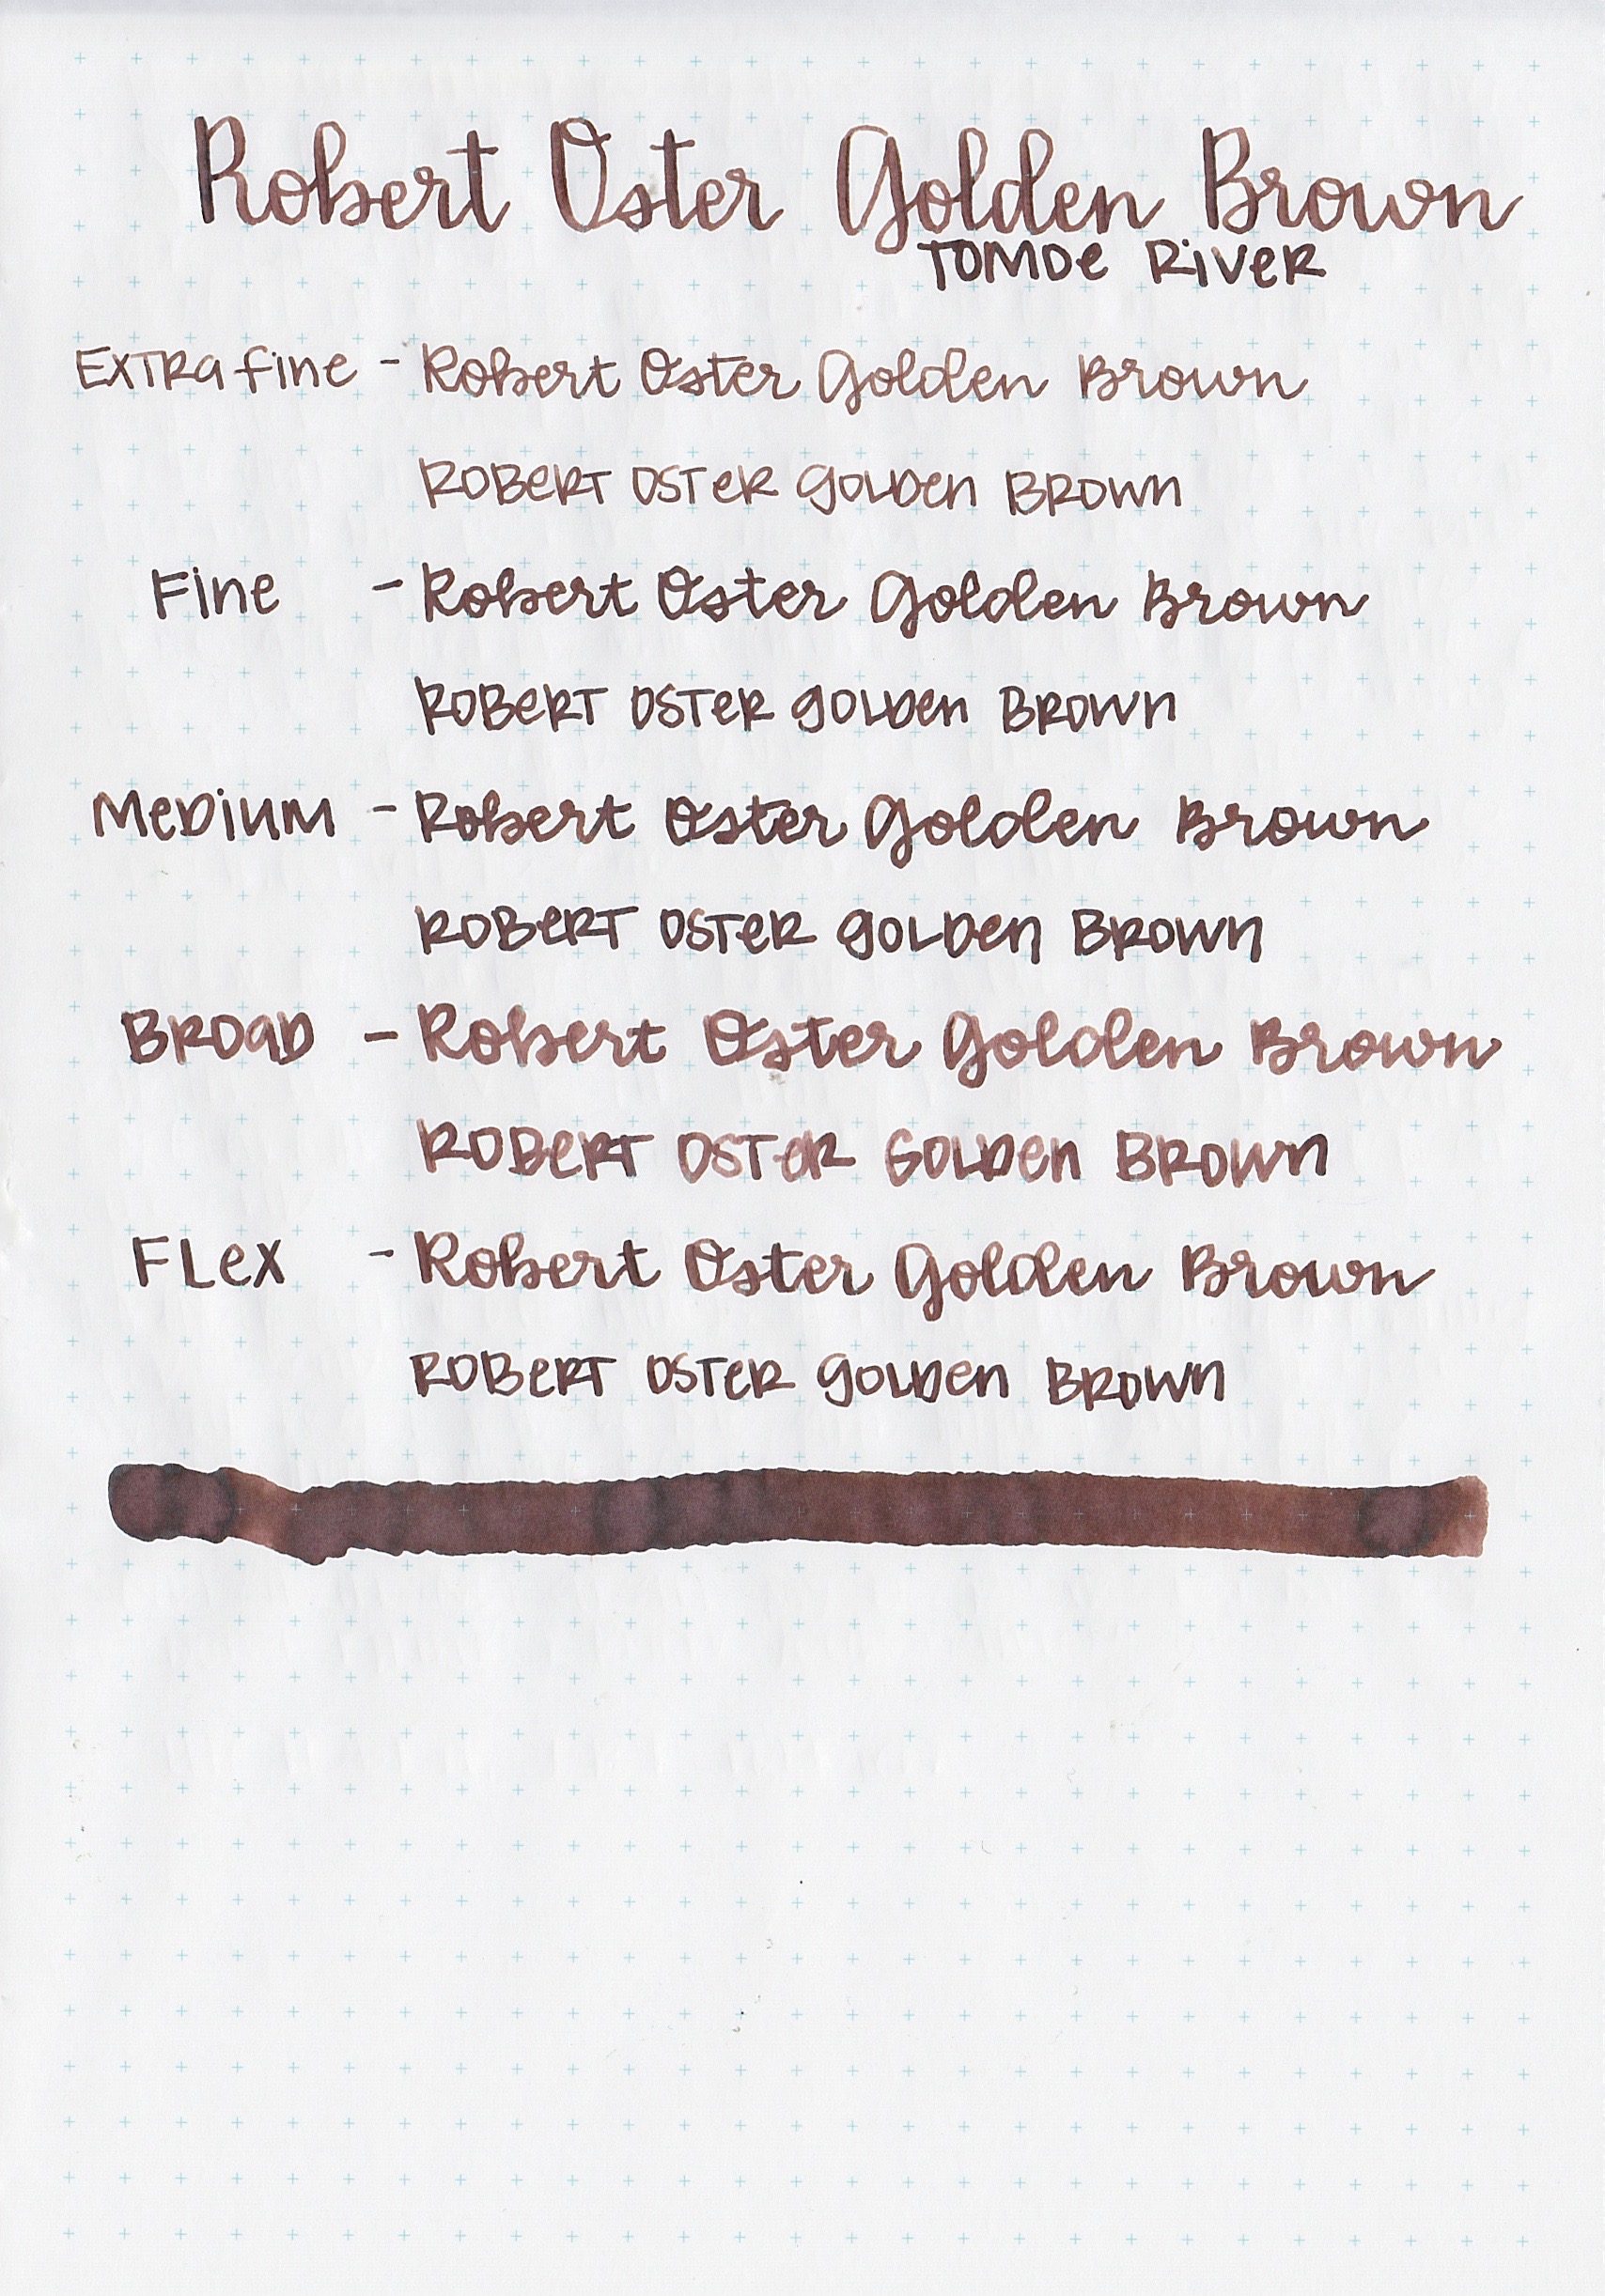 Robert Oster Golden Brown
TOMOE RiVER
EXTRA fine - Robert Oster Golden Brown
ROBERT OSTER GOLDEN BROWN
Fine - Robert Oster Golden Brown
ROBERT OSTER GOLDEN BROWN
MEDiUM - Robert Oster Golden Brown
ROBERT OSTER GOLDEN BROWN
BROAD - Robert Oster Golden Brown
ROBERT OSTER GOLDEN BROWN
FLEX - Robert Oster Golden Brown
ROBERT OSTER GOLDEN BROWN